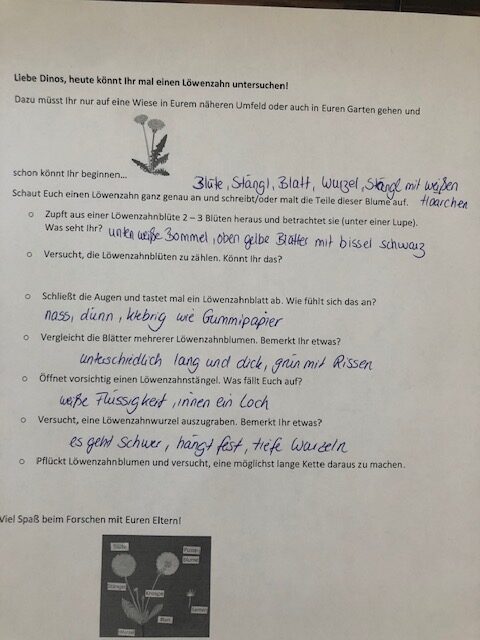 Liebe Dinos, heute könnt Ihr mal einen Löwenzahn untersuchen!
Dazu müsst Ihr nur auf eine Wiese in Eurem näheren Umfeld oder auch in Euren Garten gehen und
schon könnt Ihr beginnen...
Blüte, Stängl, Blatt, Wurzel, Stängl mit weißen
Haarchen
Schaut Euch einen Löwenzahn ganz genau an und schreibt/oder malt die Teile dieser Blume auf.
o Zupft aus einer Löwenzahnblüte 2 – 3 Blüten heraus und betrachtet sie (unter einer Lupe).
Was seht Ihr? unten weiße Bommel, oben gelbe Blätter mit bissel schwarz
o Versucht, die Löwenzahnblüten zu zählen. Könnt Ihr das?
o Schließt die Augen und tastet mal ein Löwenzahnblatt ab. Wie fühlt sich das an?
nass, dünn, klebrig wie Gummipapier
o Vergleicht die Blätter mehrerer Löwenzahnblumen. Bemerkt Ihr etwas?
unterschiedlich lang und dick, grün mit Rissen
o Öffnet vorsichtig einen Löwenzahnstängel. Was fällt Euch auf?
weiße Flüssigkeit, innen ein Loch
o Versucht, eine Löwenzahnwurzel auszugraben. Bemerkt Ihr etwas?
es geht schwer, hängt fest, tiefe Wurzeln
o Pflückt Löwenzahnblumen und versucht, eine möglichst lange Kette daraus zu machen.
Viel Spaß beim Forschen mit Euren Eltern!
Blüte
Stängel
Knospe
Blatt
Samen
Wurzel